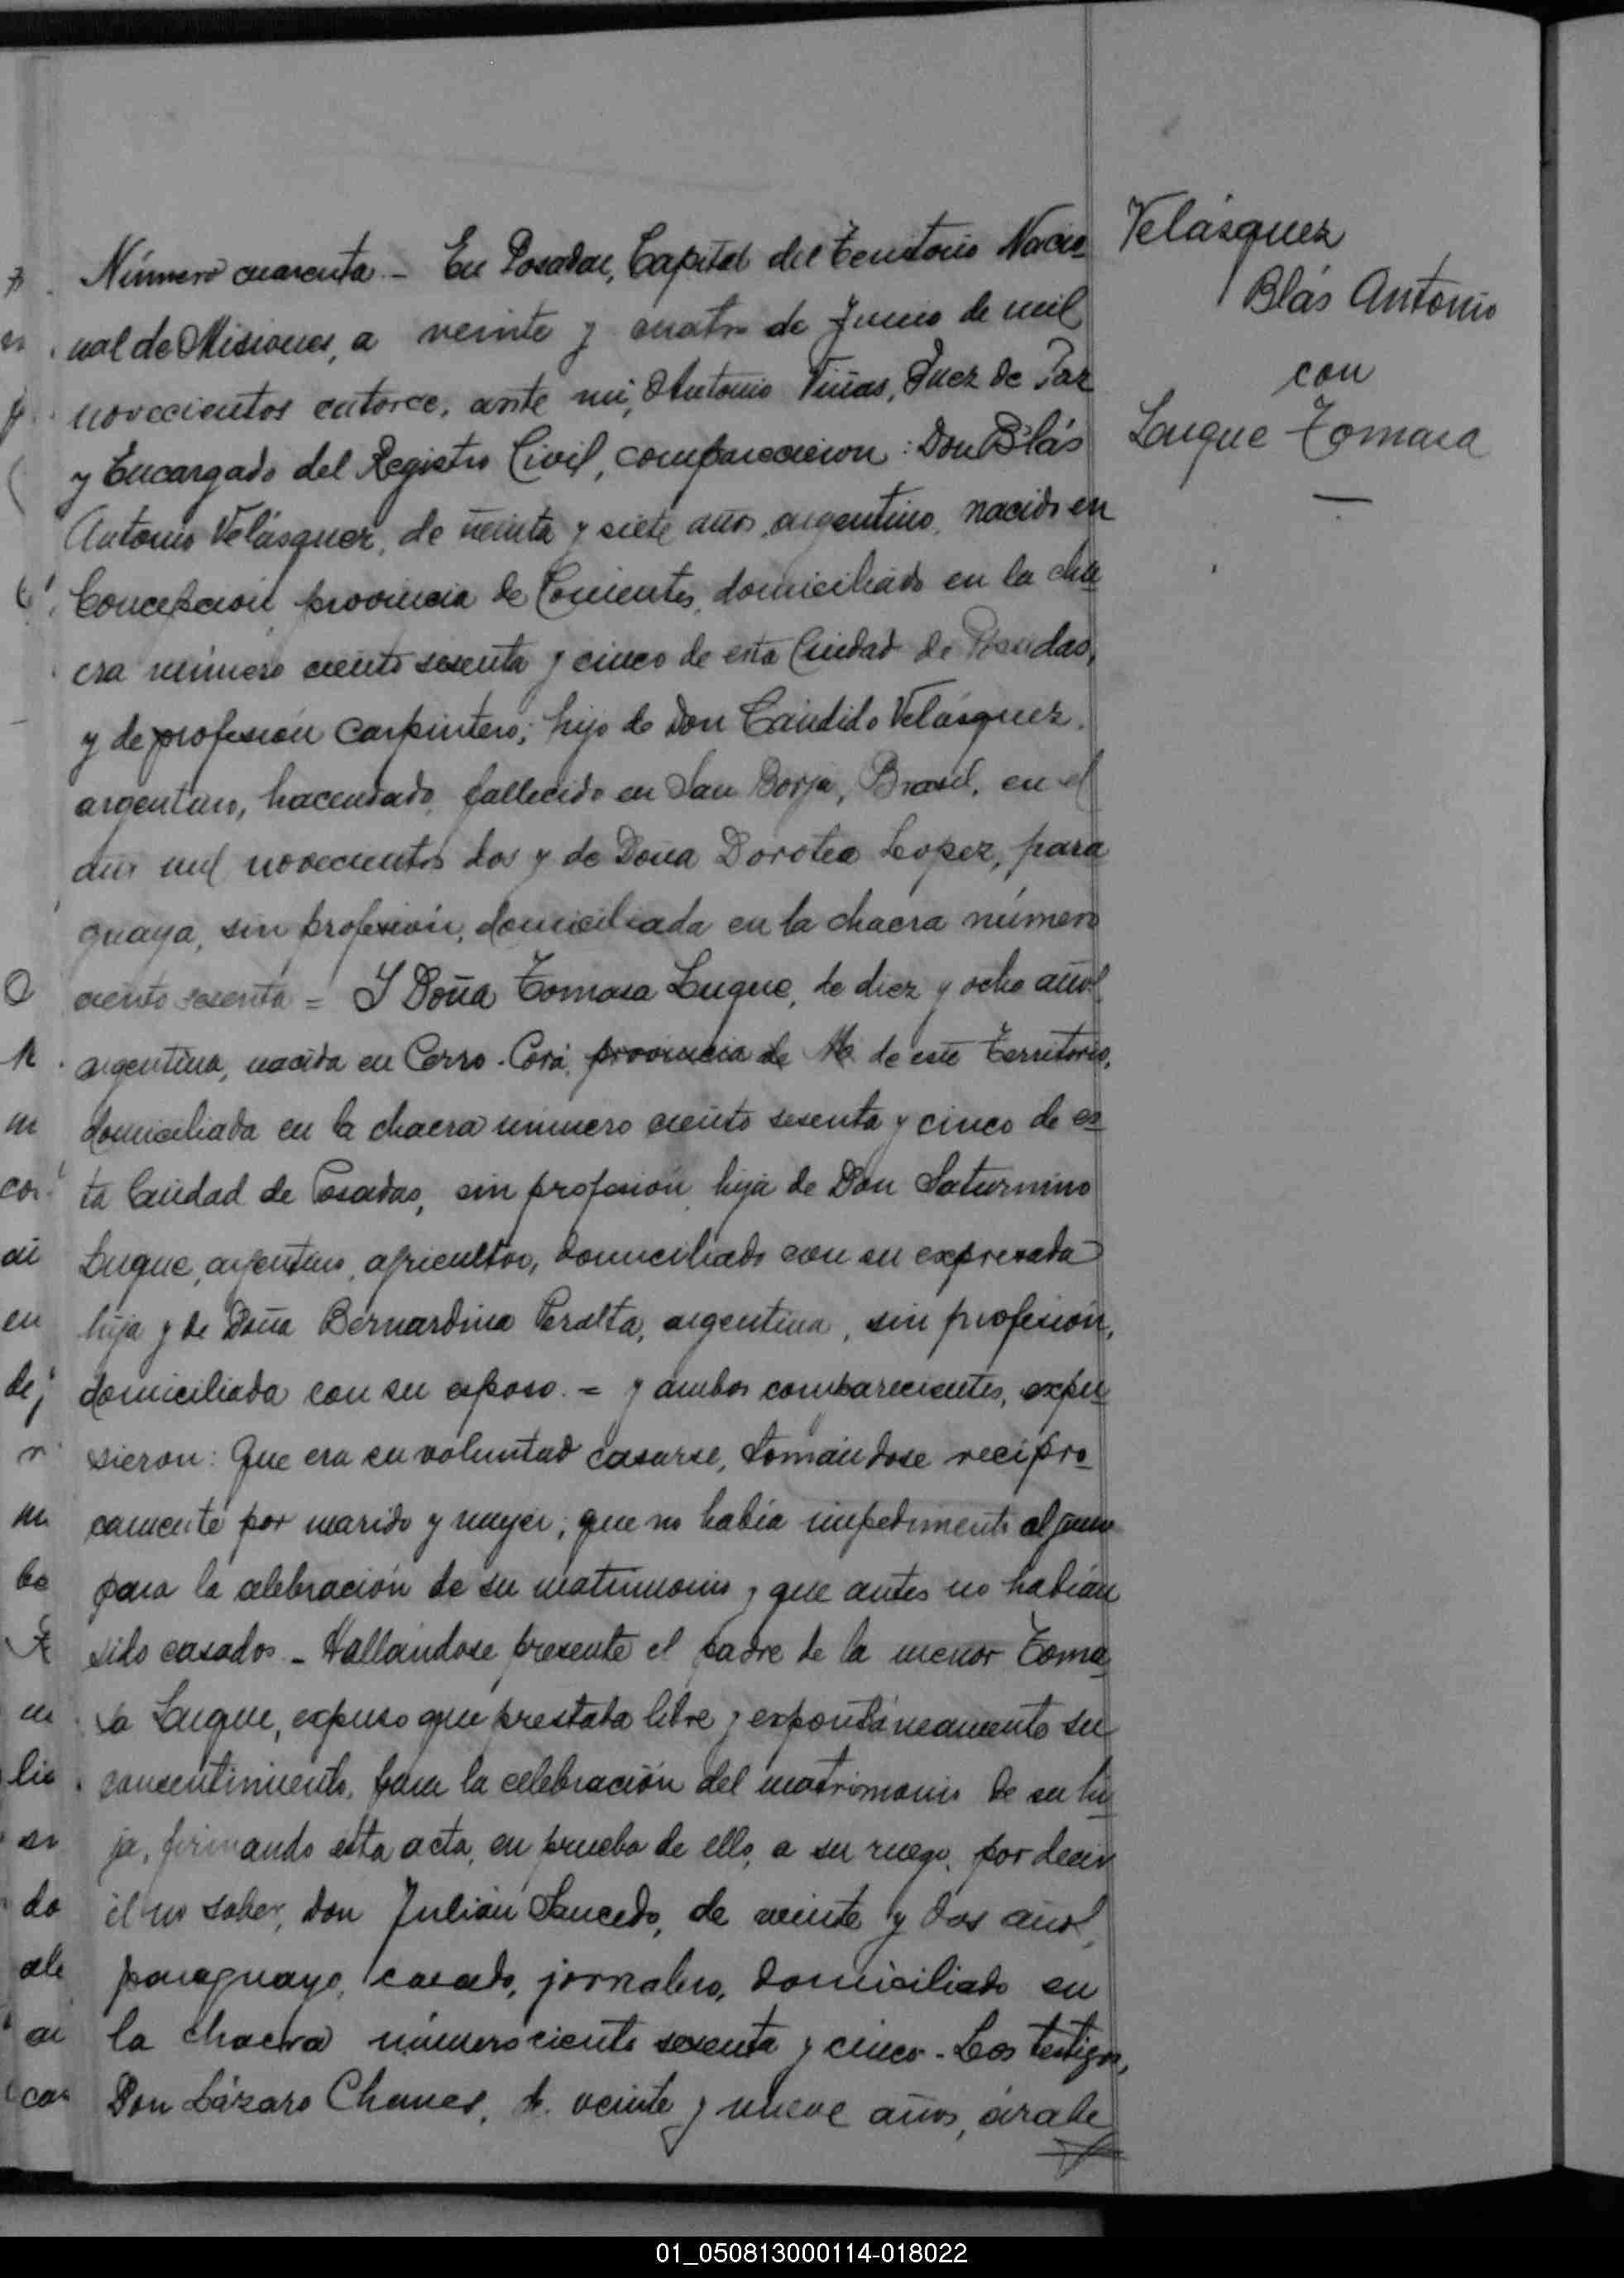 Velásquez
Blás Antonio
con
Luque Tomasa
Número cuarenta - En Posadas, Capital del Territorio Nacio
nal de Misiones, a veinte y cuatro de Junio de mil
novecientos catorce, ante mi, Antonio Viñas, Juez de Paz
y Encargado del Registro Civil, comparecieron: Don Blás
Antonio Velásquez, de treinta y siete años, argentino, nacido en
Concepción, provincia de Corrientes, domiciliado en la cha
cra número ciento sesenta y cinco de esta Ciudad de Posadas,
y de profesión carpintero; hijo de Don Cándido Velásquez,
argentino, hacendado, fallecido en San Borja, Brasil, en el
año mil novecientos dos y de Doña Dorotea Lopez, para
guaya, sin profesión, domiciliada en la chacra número
ciento sesenta = Y Doña Tomasa Luque, de diez y ocho años,
argentina, nacida en Cerro-Corá, provincia de de este Territorio,
domiciliada en la chacra número ciento sesenta y cinco de es
ta Ciudad de Posadas, sin profesión, hija de Don Saturnino
Luque, argentino, agricultor, domiciliado con su expresada
hija y de Doña Bernardina Peralta, argentina, sin profesión,
domiciliada con su esposo. = y ambos comparecientes, expu
sieron: Que era su voluntad casarse, tomándose recipro
camente por marido y mujer; que no había impedimento alguno
para la celebración de su matrimonio y que antes no habían
sido casados - Hallándose presente el padre de la menor Toma
sa Luque, expuso que prestaba libre y expontáneamente su
consentimiento, para la celebración del matrimonio de su hi
ja, firmando esta acta, en prueba de ello, a su ruego, por decir
él no saber, don Julián Saucedo, de veinte y dos años,
paraguayo, casado, jornalero, domiciliado en
la chacra número ciento sesenta y cinco - Los testigos,
Don Lázaro Chaues, de veinte y nueve años, árabe
01_050813000114-018022